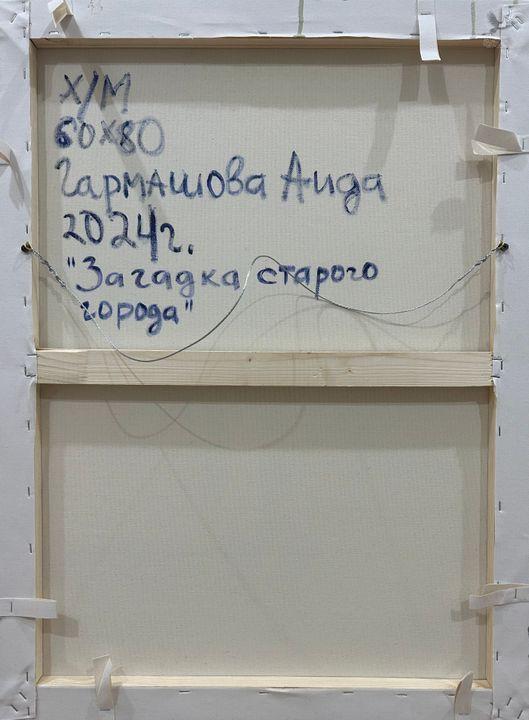 Х/М
60х80
Гармашова Аида
2024г.
"Загадка старого
города"